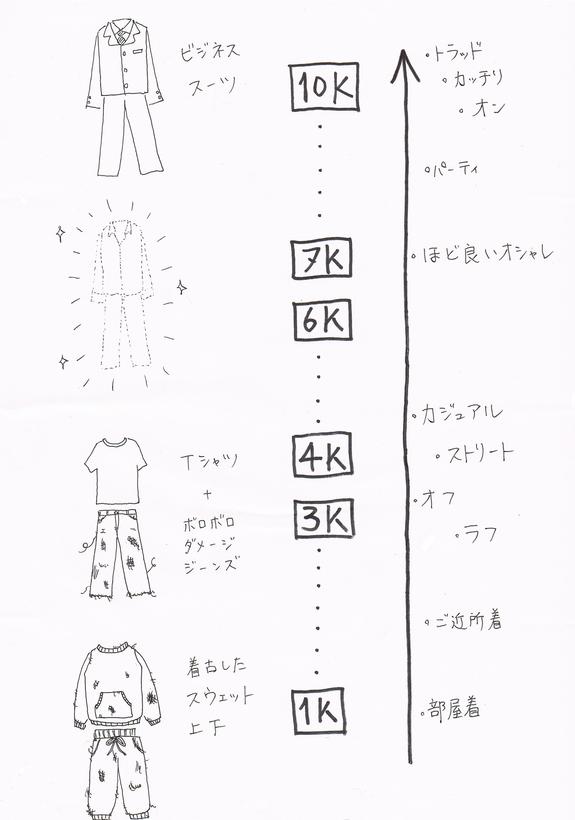 ビジネス
スーツ
10K
・トラッド
・カッチリ
・オン
・パーティ
7K
・ほど良いオシャレ
6K
・カジュアル
Tシャツ
+
ボロボロ
ダメージ
ジーンズ
4K
・ストリート
3K
・オフ
・ラフ
・ご近所着
着古した
スウェット
上下
1K
・部屋着